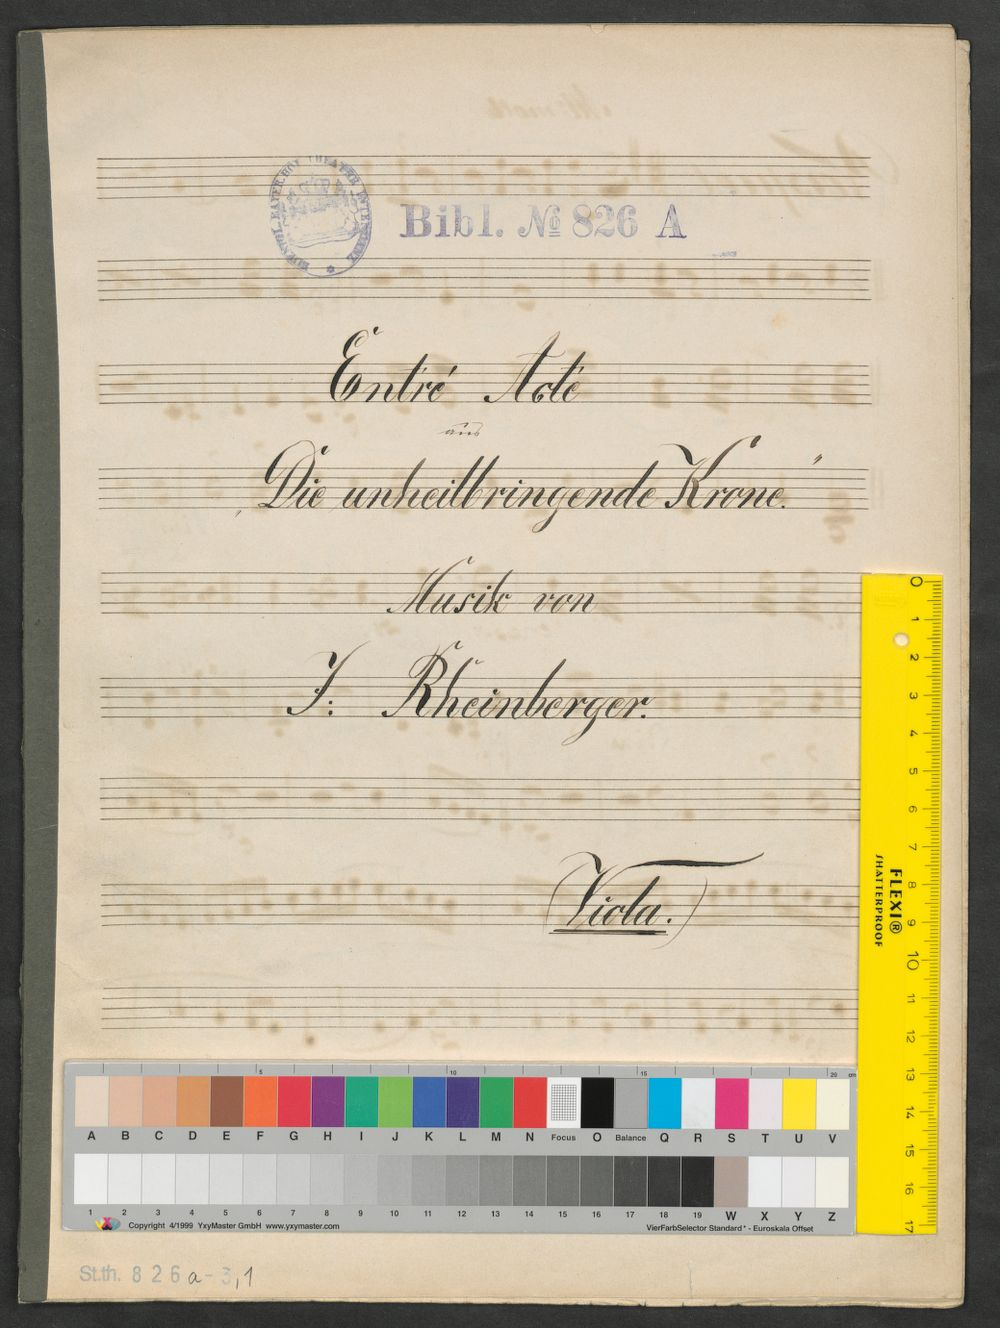 KOENIGL. BAYER. HOF THEATER INTENDANZ
Bibl. № 826 A
Entré Acté
aus
„Die unheilbringende Krone."
Musik von
J: Rheinberger.
(Viola.)
0 1 2 3 4 5 6 7 8 9 10 11 12 13 14 15 16 17
FLEXI®
SHATTERPROOF
5 10 15 20 cm
A B C D E F G H I J K L M N Focus O Balance Q R S T U V
1 2 3 4 5 6 7 8 9 10 11 12 13 14 15 16 17 18 19 W X Y Z
Copyright 4/1999 YxyMaster GmbH www.yxymaster.com
VierFarbSelector Standard* - Euroskala Offset
St.th. 826a-3,1